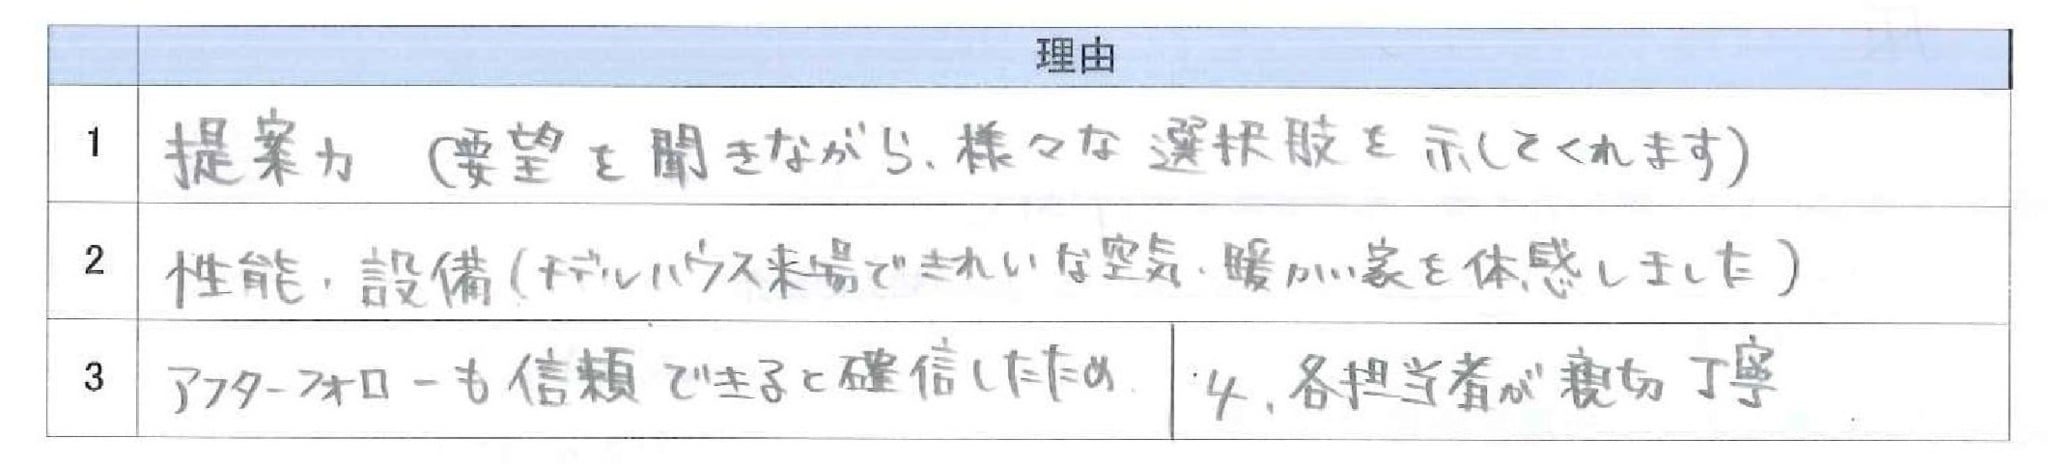 理由
1 提案力 (要望を聞きながら、様々な選択肢を示してくれます)
2 性能・設備(モデルハウス来場できれいな空気・暖かい家を体感しました)
3 アフターフォローも信頼できると確信したため 4、各担当者が親切丁寧